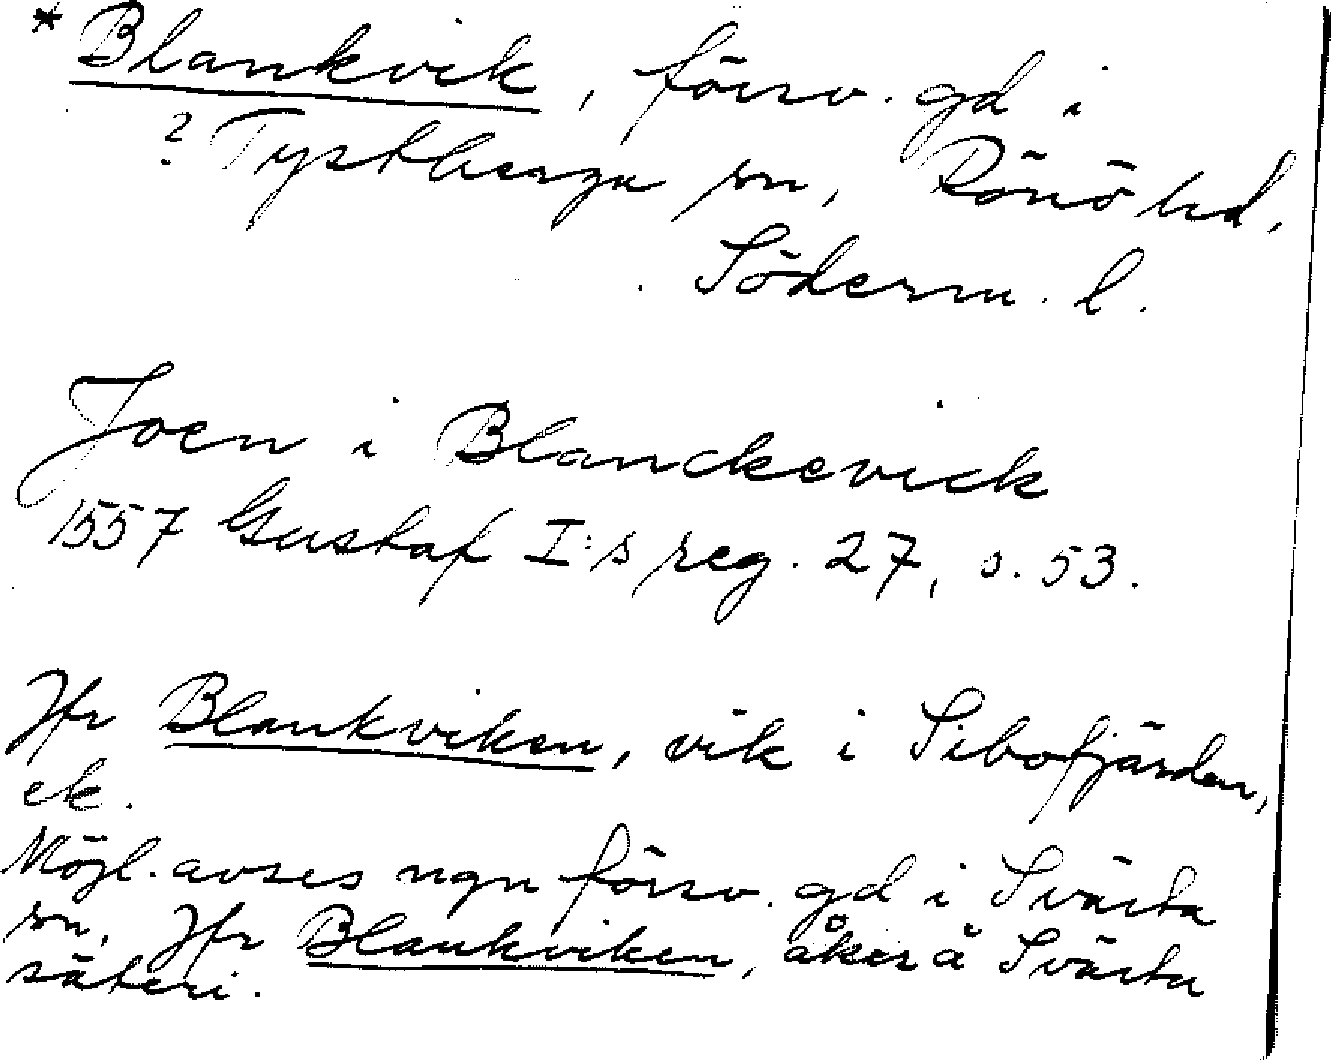 * Blankvik, försv. gd i
? Tystberga sn, Rönö hd,
Söderm. l.
Joen i Blanckevick
1557 Gustaf I:s reg. 27, s. 53.
Jfr Blankviken, vik i Sibofjärden,
ek.
Möjl. avses ngn försv. gd i Svärta
sn. Jfr Blankviken, åker å Svärta
säteri.